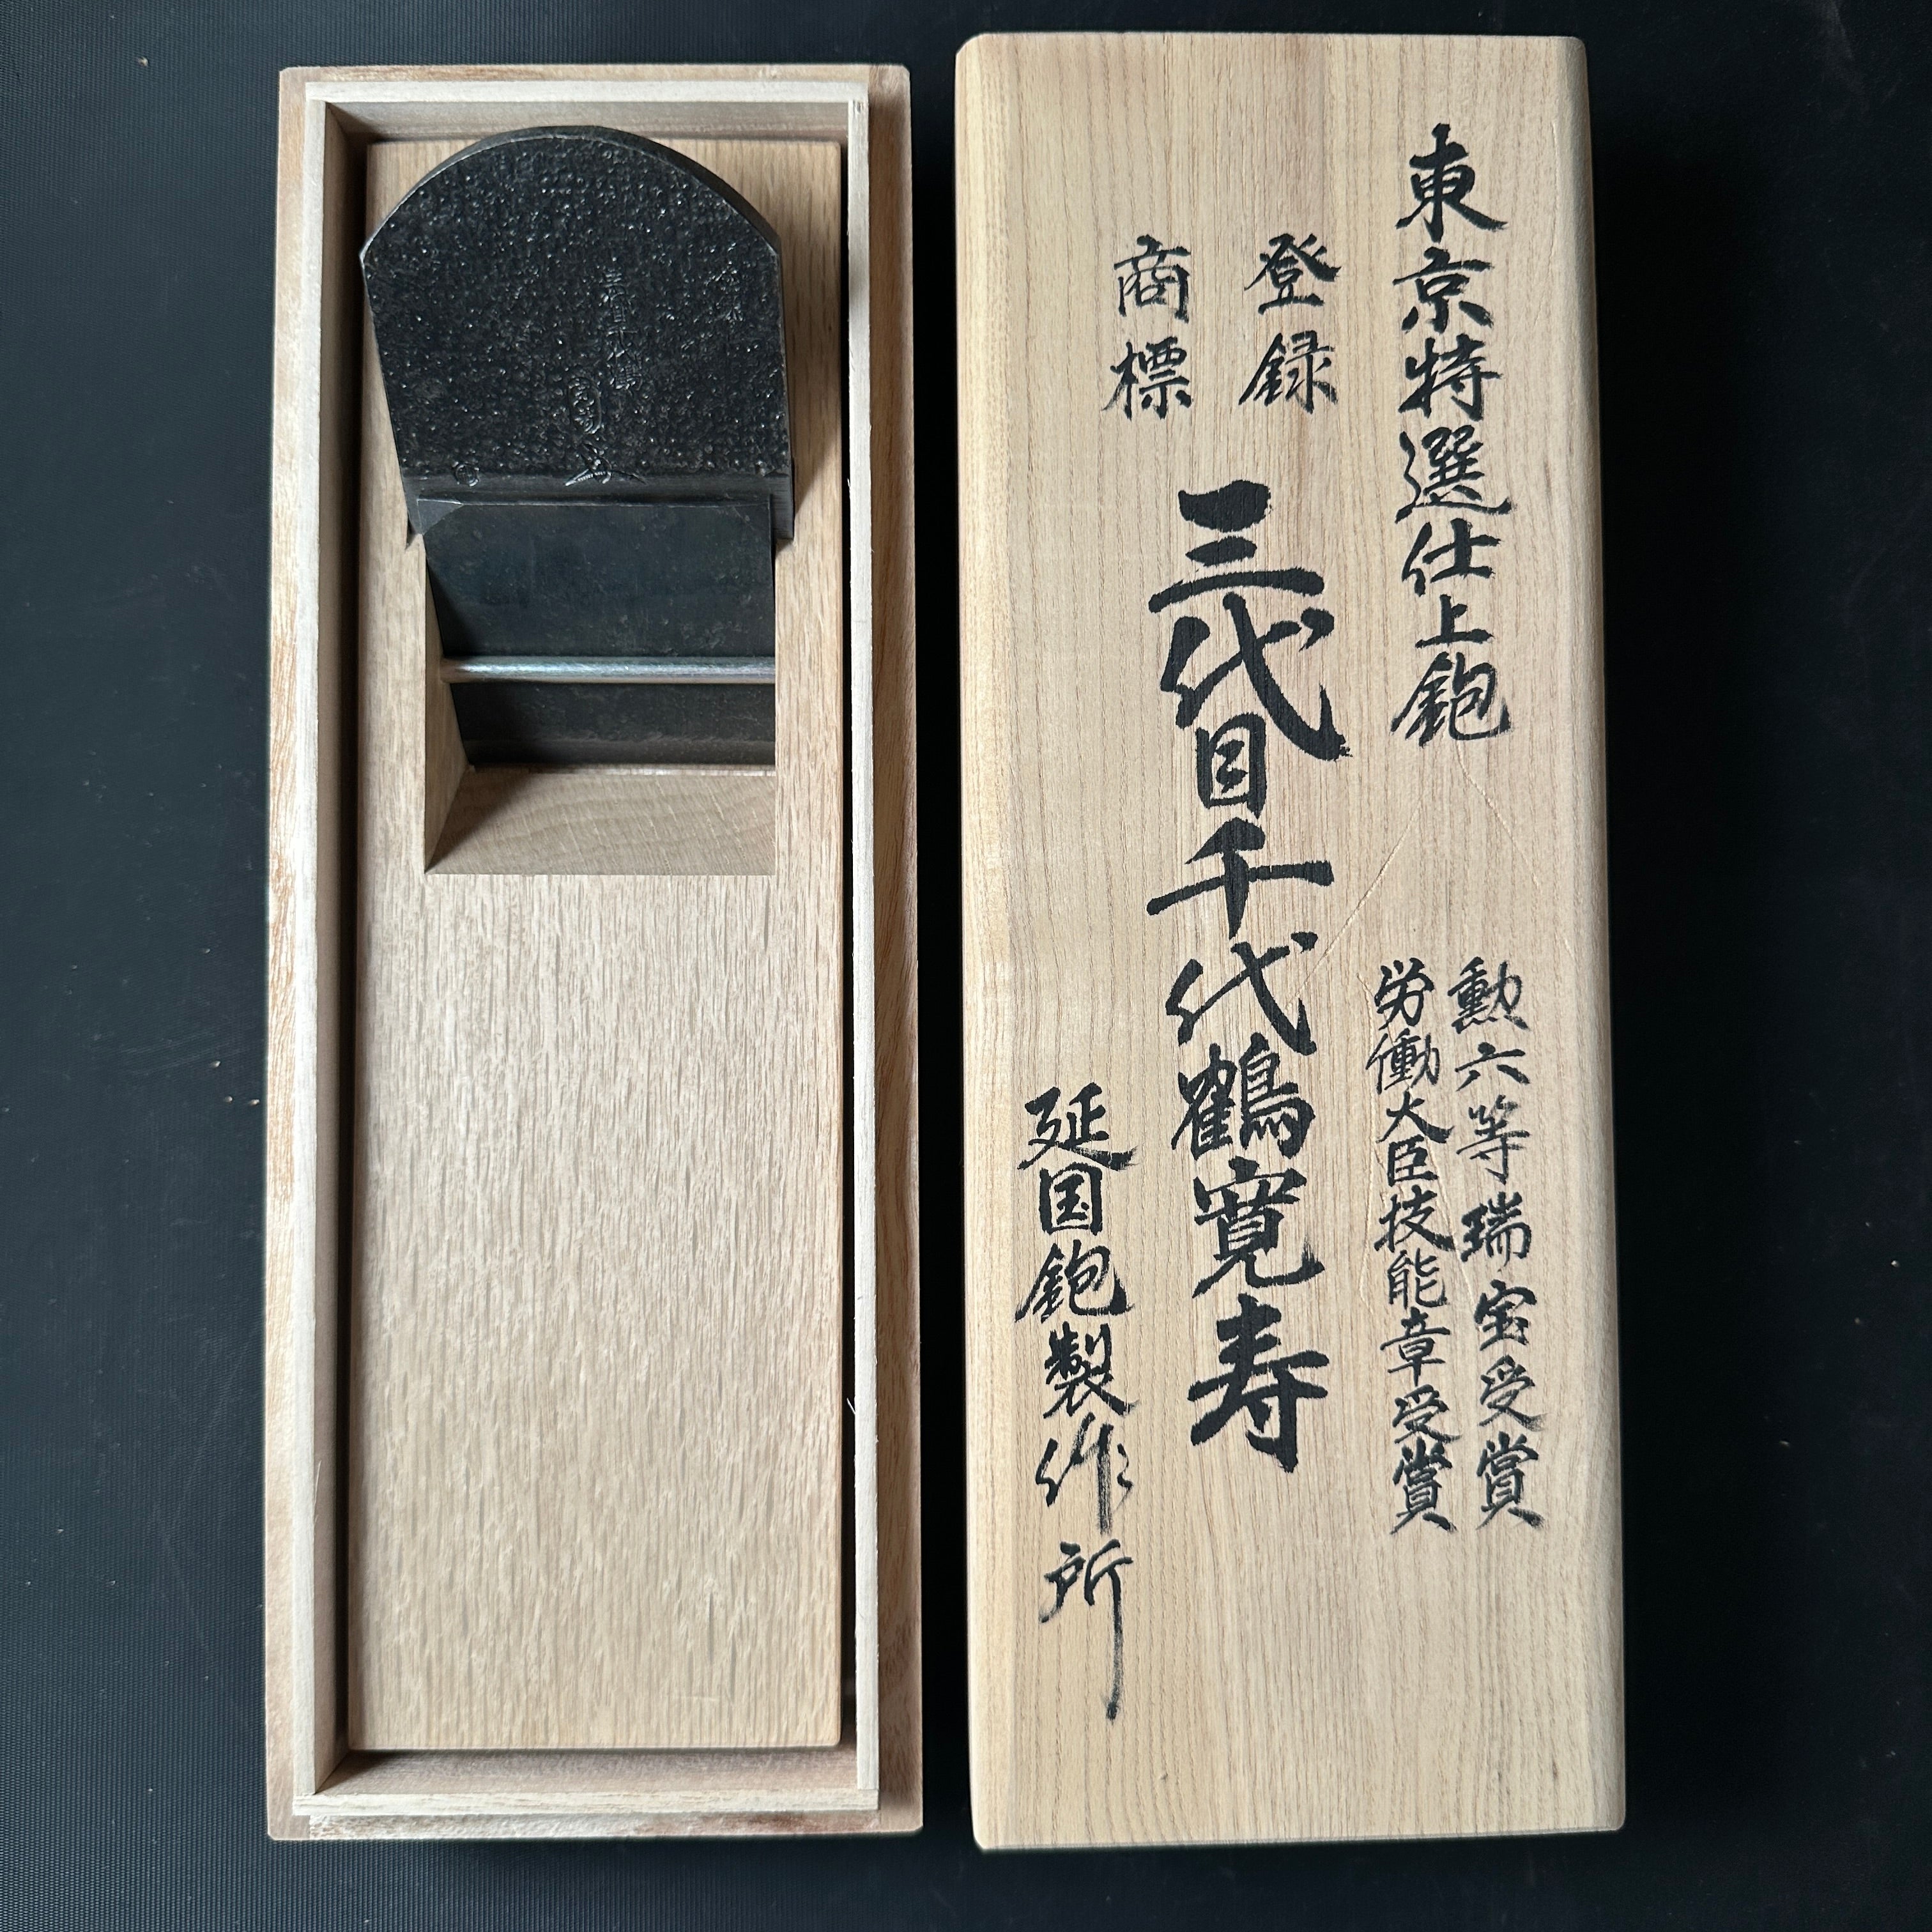 東京特選仕上鉋
勲六等瑞宝受賞
労働大臣技能章受賞
登録
商標
三代目千代鶴寛寿
延国鉋製作所